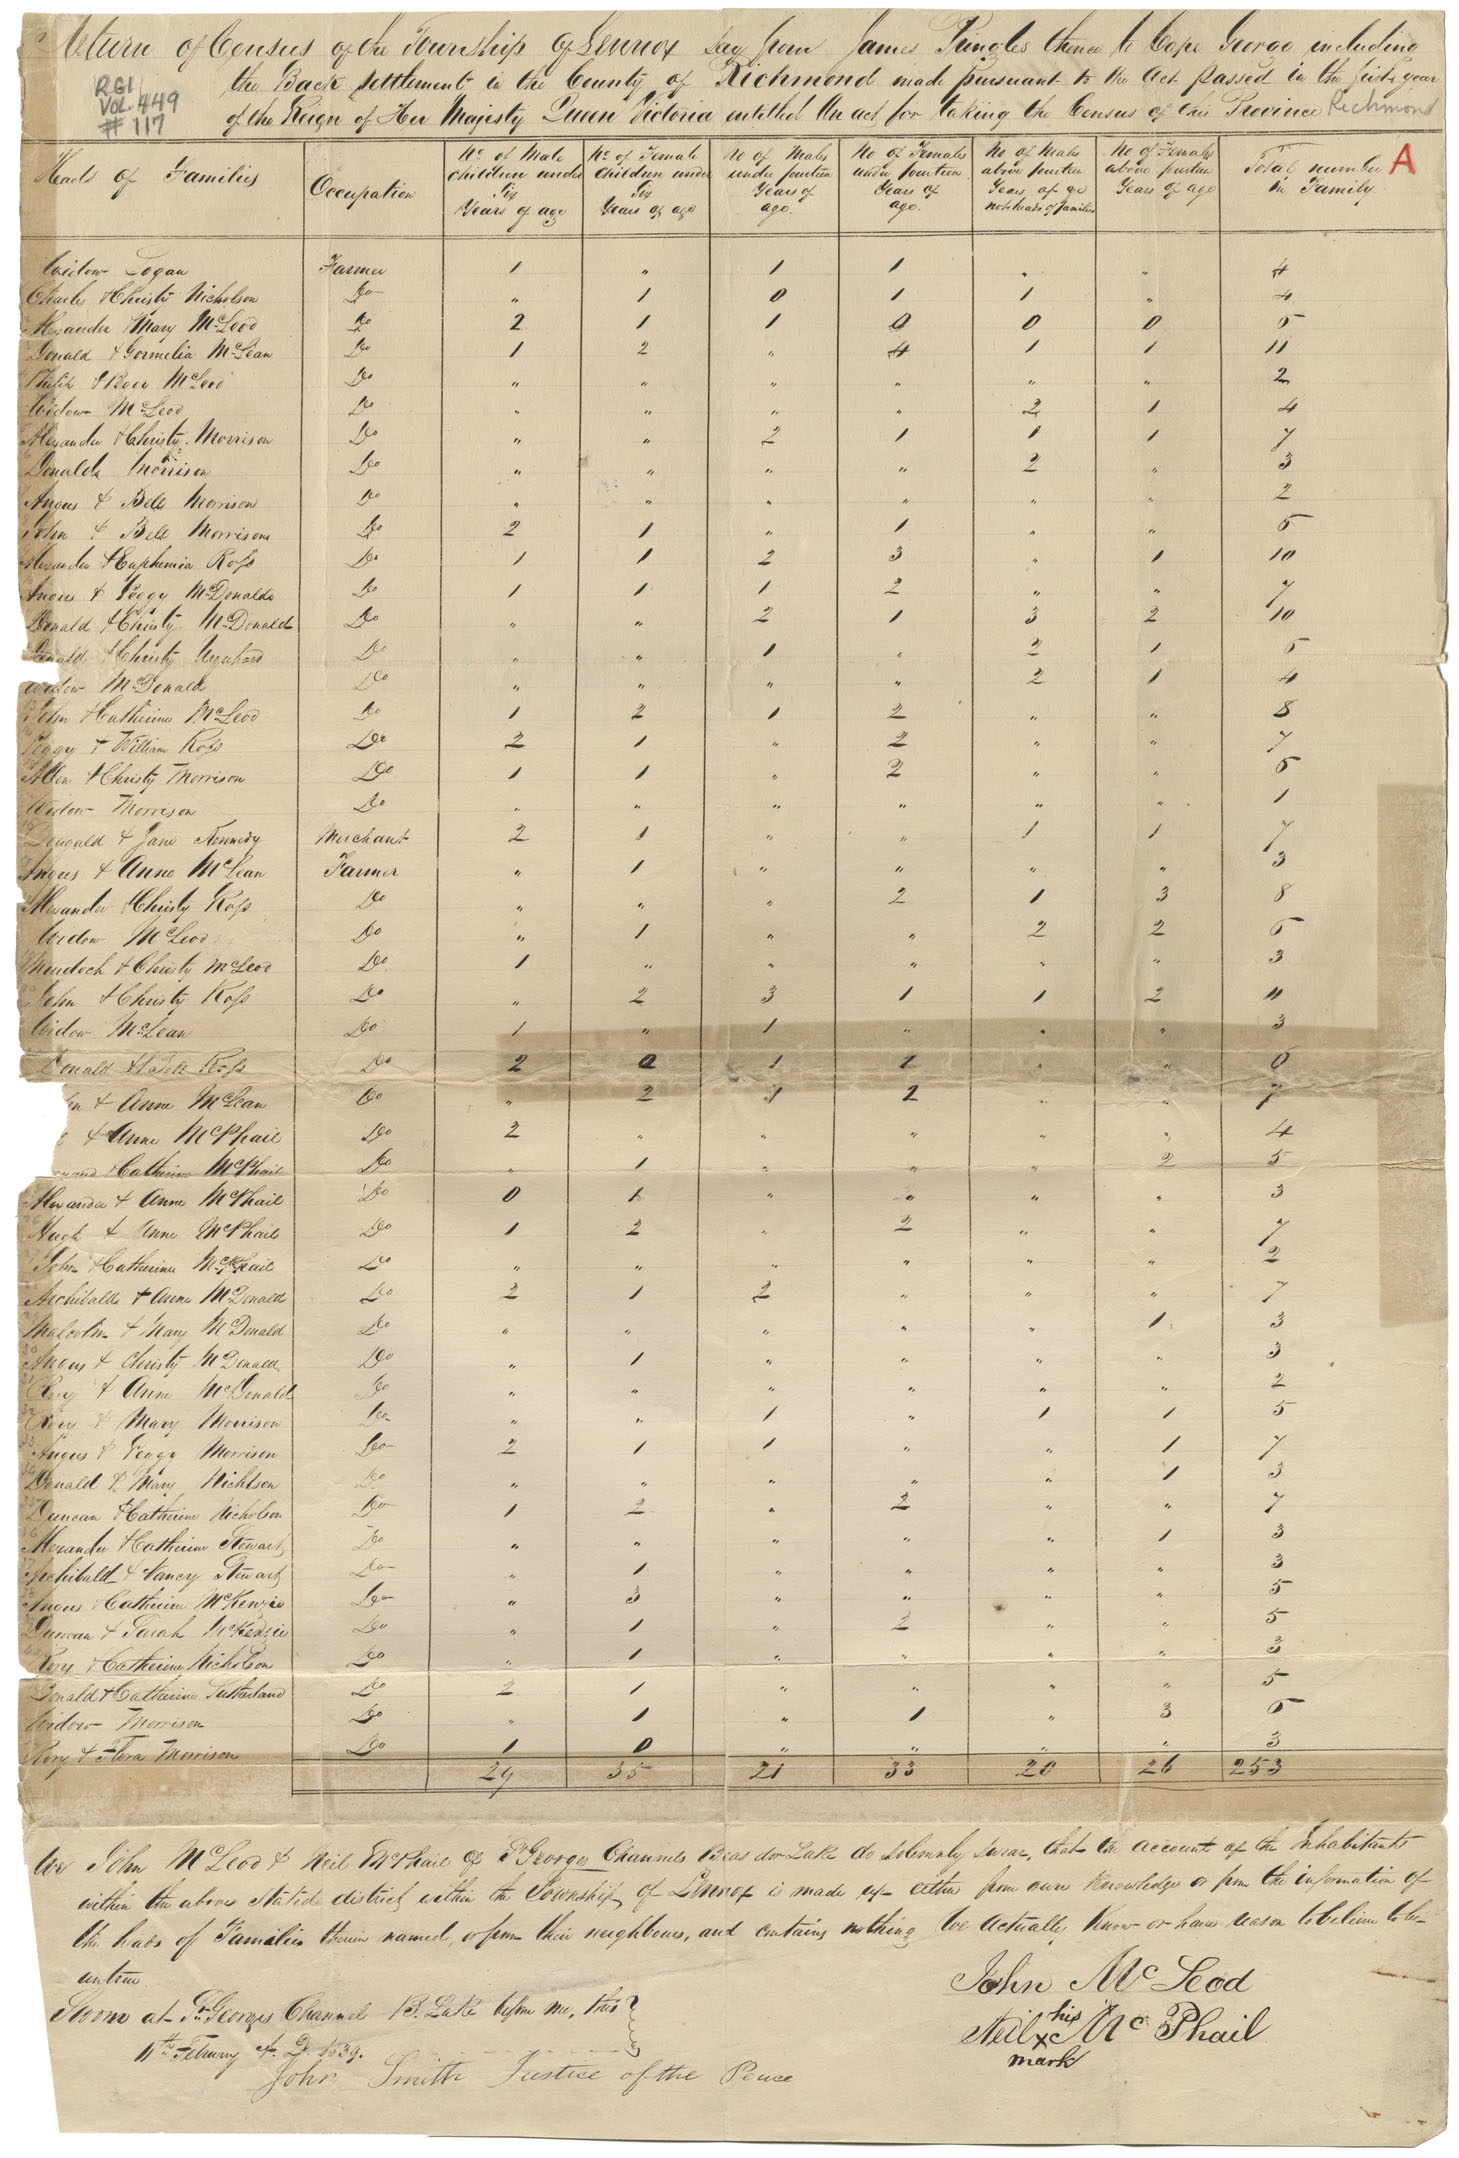 Return of Census of the Township of Lennox Say from James Pringles thence to Cape George including
the Back settlement in the County of Richmond made pursuant to the Act passed in the first year
of the Reign of Her Majesty Queen Victoria entitled An act for taking the Census of this Province Richmond
RG1
Vol. 449
# 117
A
Heads of Families | Occupation | No. of Male children under Six Years of age | No. of Female children under Six Years of age | No of Males under fourteen Years of age. | No of Females under fourteen Years of age. | No of Males above fourteen Years of age not heads of families | No of Females above fourteen Years of age | Total number in Family.
Widow Logan Farmer 1 " 1 1 " " 4
Charles & Christy Nicholson Do " 1 0 1 1 " 4
Alexander Mary McLeod Do 2 1 1 0 0 0 6
Donald & Gormelia McLean Do 1 2 " 4 1 1 11
McLeod Do " " " " " " 2
Widow McLeod Do " " " " 2 1 4
Alexander & Christy Morrison Do " " 2 1 1 1 7
Donald Morrison Do " " " " 2 " 3
Angus & Bell Morrison Do " " " " " " 2
John & Bell Morrison Do 2 1 " 1 " " 6
Alexander & Euphemia Ross Do 1 1 2 3 " 1 10
Angus & Peggy McDonald Do 1 1 1 2 " " 7
Donald & Christy McDonald Do " " 2 1 3 2 10
Donald & Christy Urquhard Do " " 1 " 2 1 6
Widow McDonald Do " " " " 2 1 4
John & Catherine McLeod Do 1 2 1 2 " " 8
Peggy & William Ross Do 2 1 " 2 " " 7
Allen & Christy Morrison Do 1 1 " 2 " " 6
Widow Morrison Do " " " " " " 1
Dougald & Jane Kennedy Merchant 2 1 " " 1 1 7
Angus & Anne McLean Farmer " 1 " " " " 3
Alexander & Christy Ross Do " " " 2 1 3 8
Widow McLeod Do " 1 " " 2 2 6
Murdoch & Christy McLeod Do 1 " " " " " 3
John & Christy Ross Do " 2 3 1 1 2 11
Widow McLean Do 1 " 1 " " " 3
Donald & Ross Do 2 0 1 1 " " 6
& Anne McLean Do " 2 1 2 " " 7
& Anne McPhail Do 2 " " " " " 4
Catherine McPhail Do " 1 " " " 2 5
Alexander & Anne McPhail Do 0 1 " " " " 3
Hugh & Anne McPhail Do 1 2 " 2 " " 7
John & Catherine McPhail Do " " " " " " 2
Archibald & Anne McDonald Do 2 1 2 " " " 7
Malcolm & Mary McDonald Do " " " " " 1 3
Angus & Christy McDonald Do " 1 " " " " 3
Rory & Anne McDonald Do " " " " " " 2
Rory & Mary Morrison Do " " 1 " 1 1 5
Angus & Peggy Morrison Do 2 1 1 " " 1 7
Donald & Mary Nichlson Do " " " " " 1 3
Duncan & Catherine Nicholson Do 1 2 " 2 " " 7
Alexander & Catherine Stewart Do " " " " " 1 3
Archibald & Nancy Stewart Do " 1 " " " " 3
Angus & Catherine McKenzie Do " 3 " " " " 5
Duncan & Sarah McKenzie Do " 1 " 2 " " 5
Rory & Catherine Nicholson Do " 1 " " " " 3
Donald & Catherine Sutherland Do 2 1 " " " " 5
Widow Morrison Do " 1 " 1 " 3 6
Rory & Flora Morrison Do 1 0 " " " " 3
29 35 21 33 20 26 253
We John McLeod & Neil McPhail of St Georges Channel Bras dor Lake do solemnly swear, that the account of the Inhabitants
within the above stated district within the Township of Lennox is made up either from our own knowledge or from the information of
the heads of Families therein named, or from their neighbours, and contains nothing we actually know or have reason to believe to be
untrue.
Sworn at St Georges Channel B. Lake before me, this
11th February A. D. 1839.
John Smith Justice of the Peace
John McLeod
Neil his x McPhail
mark